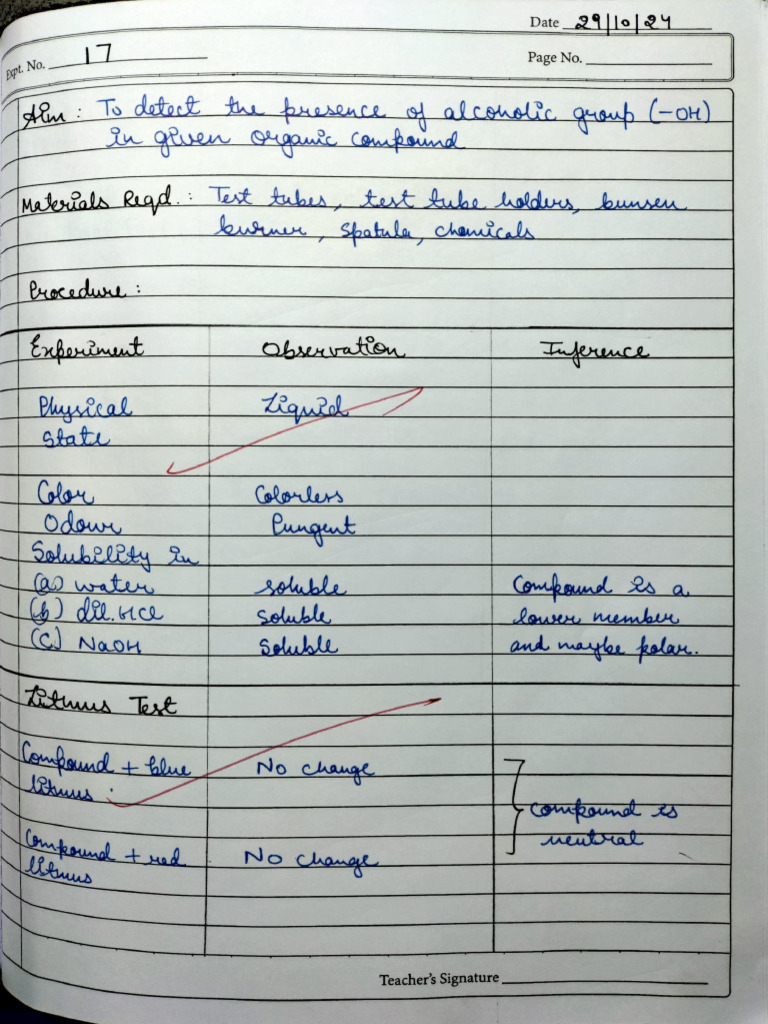 Date 29/10/24
Expt. No. 17
Page No.
Aim : To detect the presence of alcoholic group (-OH)
in given organic compound
Materials Reqd. : Test tubes, test tube holders, bunsen
burner, spatula, chemicals
Procedure :
Experiment Observation Inference
Physical Liquid
state
Color Colorless
Odour Pungent
Solubility in
(a) water soluble Compound is a
(b) dil. HCl soluble lower member
(c) NaOH soluble and maybe polar.
Litmus Test
Compound + blue No change
litmus
compound is
neutral
Compound + red No change
litmus
Teacher's Signature